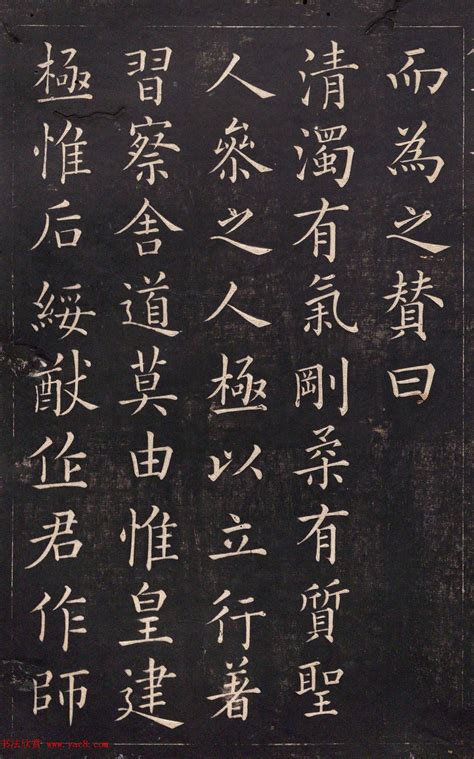 而為之贊曰
清濁有氣剛柔有質聖
人參之人極以立行著
習察舍道莫由惟皇建
極惟后綏猷作君作師
书法欣赏-www.yac8.com